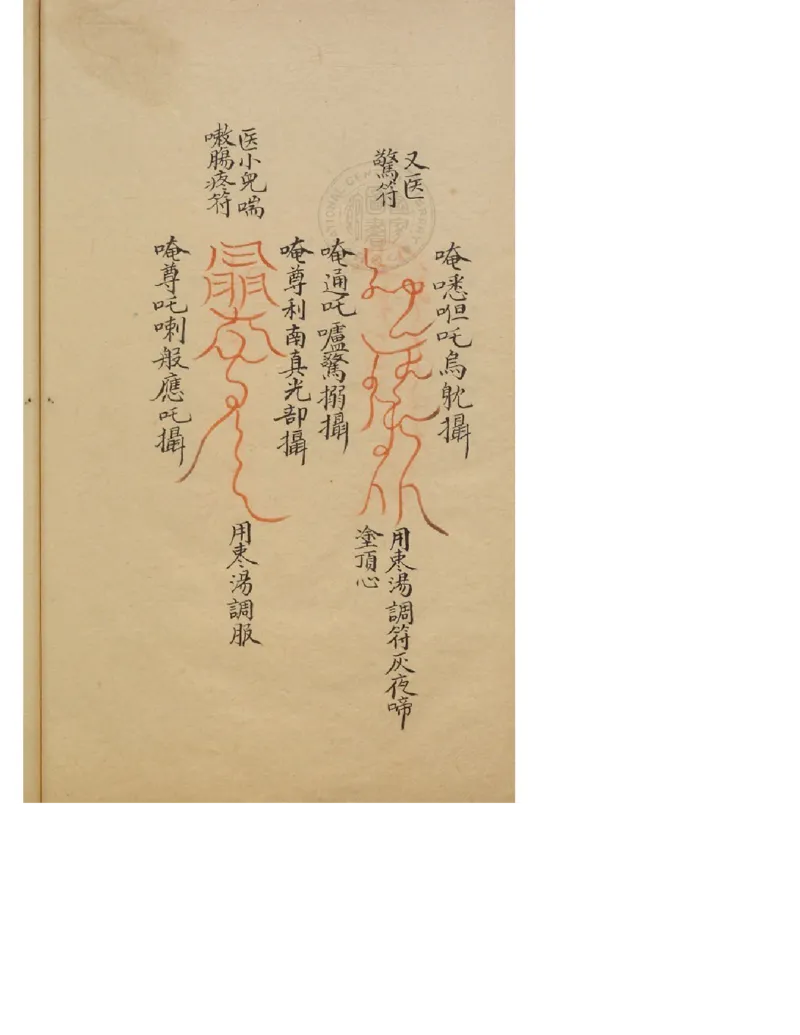 又医
驚符
唵嚧呾吒烏躭攝
唵通吒嚧驚搦攝
用枣湯調符灰夜啼
塗頂心
医小兒喘
嗽腸疼符
唵尊利南真光部攝
唵尊吒喇般應吒攝
用枣湯調服